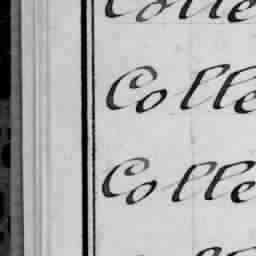 Colle
Colle
Colle